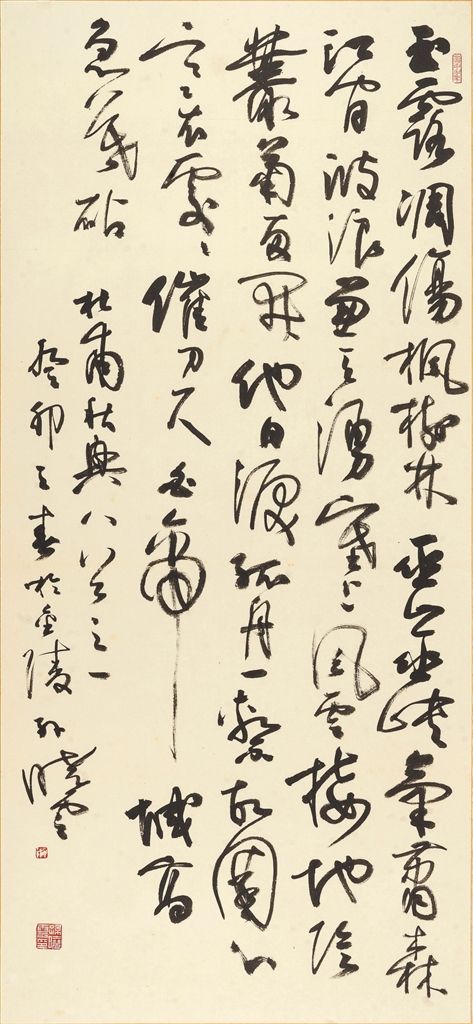 玉露凋傷楓樹林巫山巫峽氣蕭森
江間波浪兼天湧塞上風雲接地陰
叢菊兩開他日淚孤舟一繫故園心
寒衣處〻催刀尺白帝城高
急暮砧
杜甫秋興八首之一
癸卯之春於金陵孫曉雲